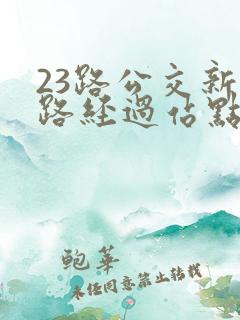 23路公交新
路經過佔點
鮑華
未経同意禁止转载